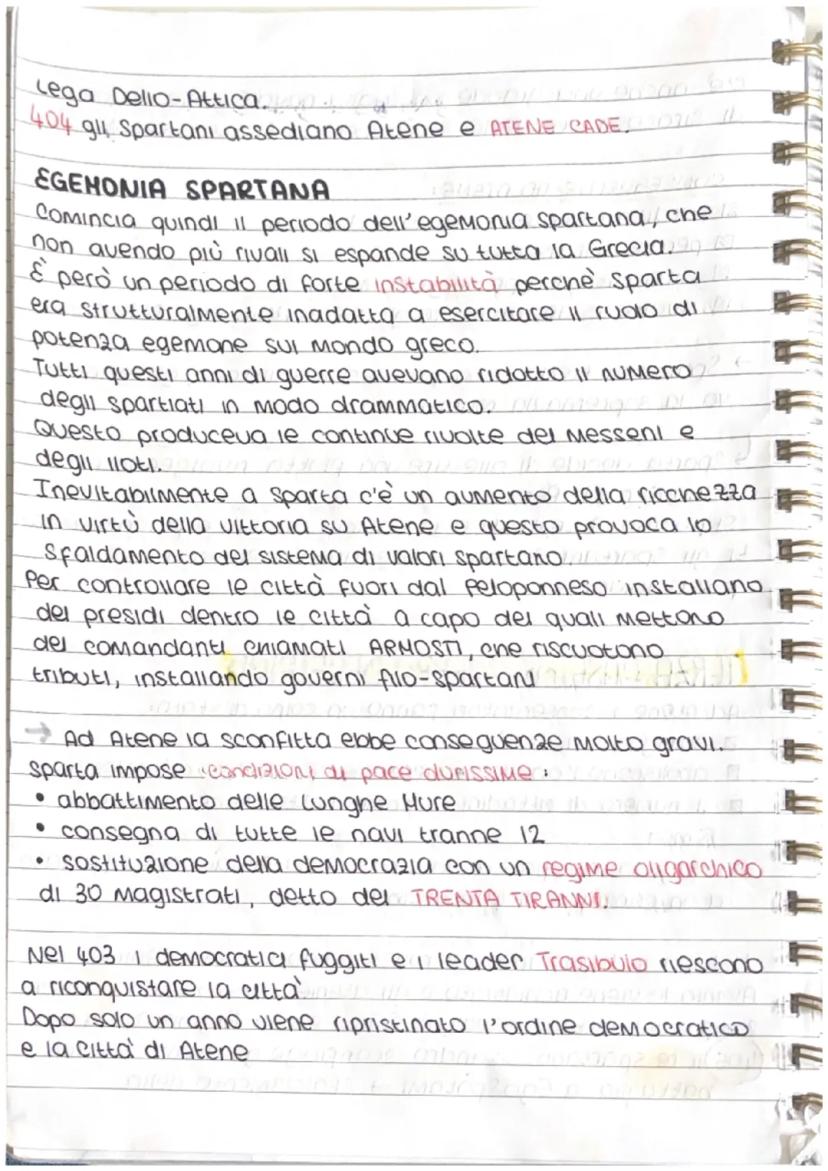 Lega Delio-Attica.
404 gli Spartani assediano Atene e ATENE CADE.
EGEMONIA SPARTANA
Comincia quindi il periodo dell'egemonia spartana, che
non avendo più rivali si espande su tutta la Grecia.
È però un periodo di forte instabilità perchè Sparta
era strutturalmente inadatta a esercitare il ruolo di
potenza egemone sul mondo greco.
Tutti questi anni di guerre avevano ridotto il numero
degli spartiati in modo drammatico.
Questo produceva le continue rivolte dei Messeni e
degli iloti.
Inevitabilmente a Sparta c'è un aumento della ricchezza
in virtù della vittoria su Atene e questo provoca lo
sfaldamento del sistema di valori spartano.
Per controllare le città fuori dal Peloponneso installano
dei presidi dentro le città a capo dei quali mettono
dei comandanti chiamati ARMOSTI, che riscuotono
tributi, installando governi filo-spartani
→ Ad Atene la sconfitta ebbe conseguenze molto gravi.
Sparta impose condizioni di pace durissime:
• abbattimento delle Lunghe Mure
• consegna di tutte le navi tranne 12
• sostituzione della democrazia con un regime oligarchico
di 30 magistrati, detto dei TRENTA TIRANNI.
Nel 403 i democratici fuggiti e i leader Trasibulo riescono
a riconquistare la città
Dopo solo un anno viene ripristinato l'ordine democratico
e la città di Atene